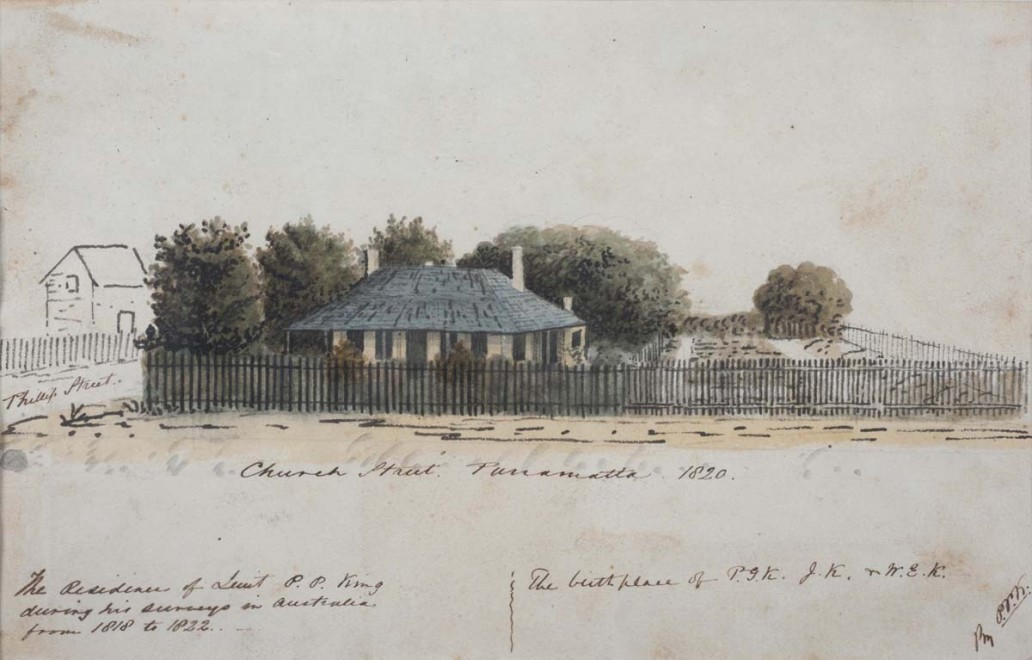 Phillip Street.
Church Street. Parramatta 1820.
The Residence of Lieut P. P. King
during his surveys in Australia
from 1818 to 1822.
The birthplace of P.G.K. J.K. & W.E.K.
By P.P.K.